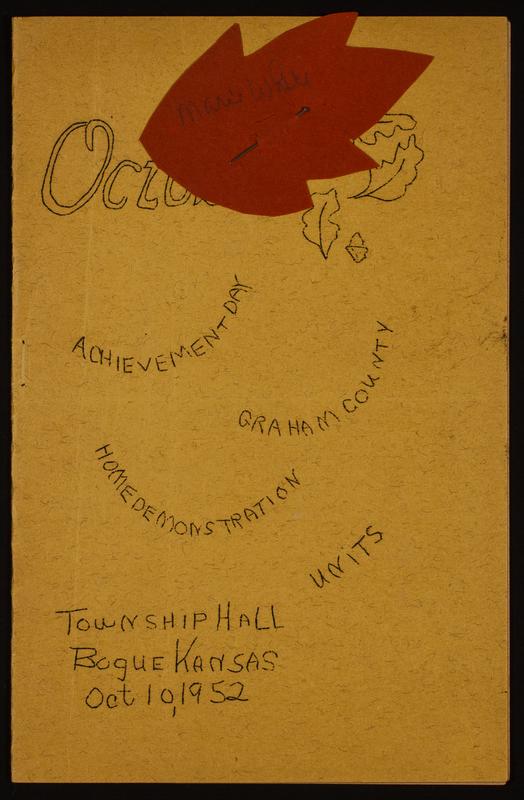 Octo
ACHIEVEMENT DAY
GRAHAM COUNTY
HOME DEMONSTRATION
UNITS
TOWNSHIP HALL
BOGUE KANSAS
Oct 10, 1952